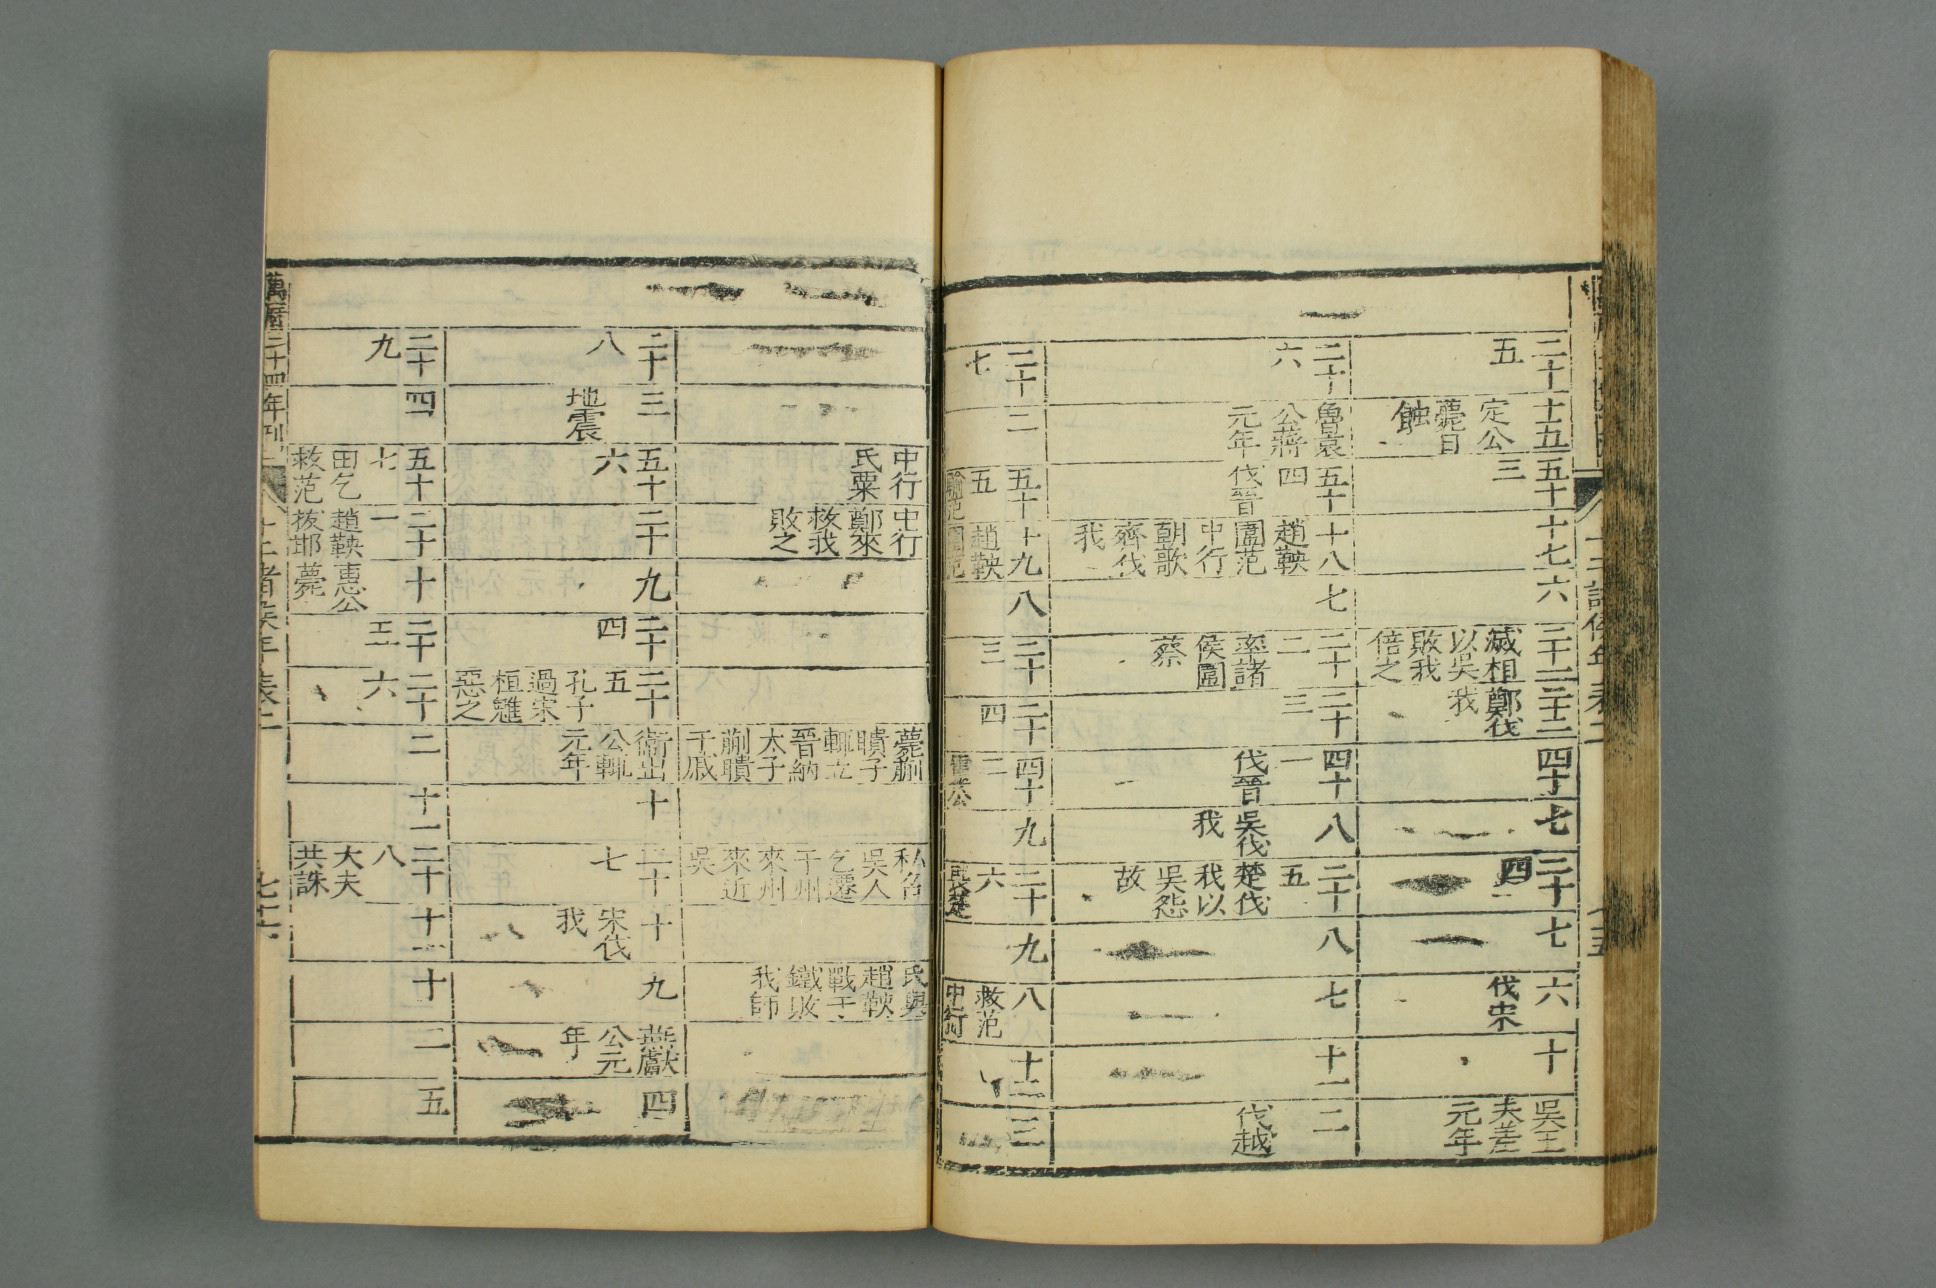 二十五
十五
定公
薨日
蝕
五十三
十七
六
二十一
滅胡
以吳
敗我
倍之
二十二
鄭伐
我
四十
七
二十四
七
六
伐宋
十
吳王
夫差
元年
二十六
魯哀
公蔣
元年
五十四
伐晉
十八
趙鞅
圍范
中行
朝歌
齊伐
我
七
二十二
率諸
侯圍
蔡
二十三
四十一
伐晉
八
吳伐
我
二十五
楚伐
我以
吳怨
故
八
七
十一
二
伐越
二十七
二
五十五
輸范
十九
趙鞅
圍范
八
二十三
二十四
四十二
靈公
九
二十六
畏楚
九
八
救范
中行
十二
三
中行
氏粟
中行
鄭來
救我
敗之
薨蒯
聵子
輒立
晉納
太子
蒯聵
于戚
私召
吳人
乞遷
于州
來州
來近
吳
氏與
趙鞅
戰于
鐵敗
我師
二十八
三
地震
五十六
二十
九
二十四
二十五
孔子
過宋
桓魋
惡之
衛出
公輒
元年
十
二十七
十
宋伐
我
九
燕獻
公元
年
四
二十九
四
五十七
田乞
救范
二十一
趙鞅
拔邯
十
惠公
薨
二十五
二十六
二
十一
二十八
大夫
共誅
十一
十
二
五
萬曆二十四年刊
十二諸侯年表二